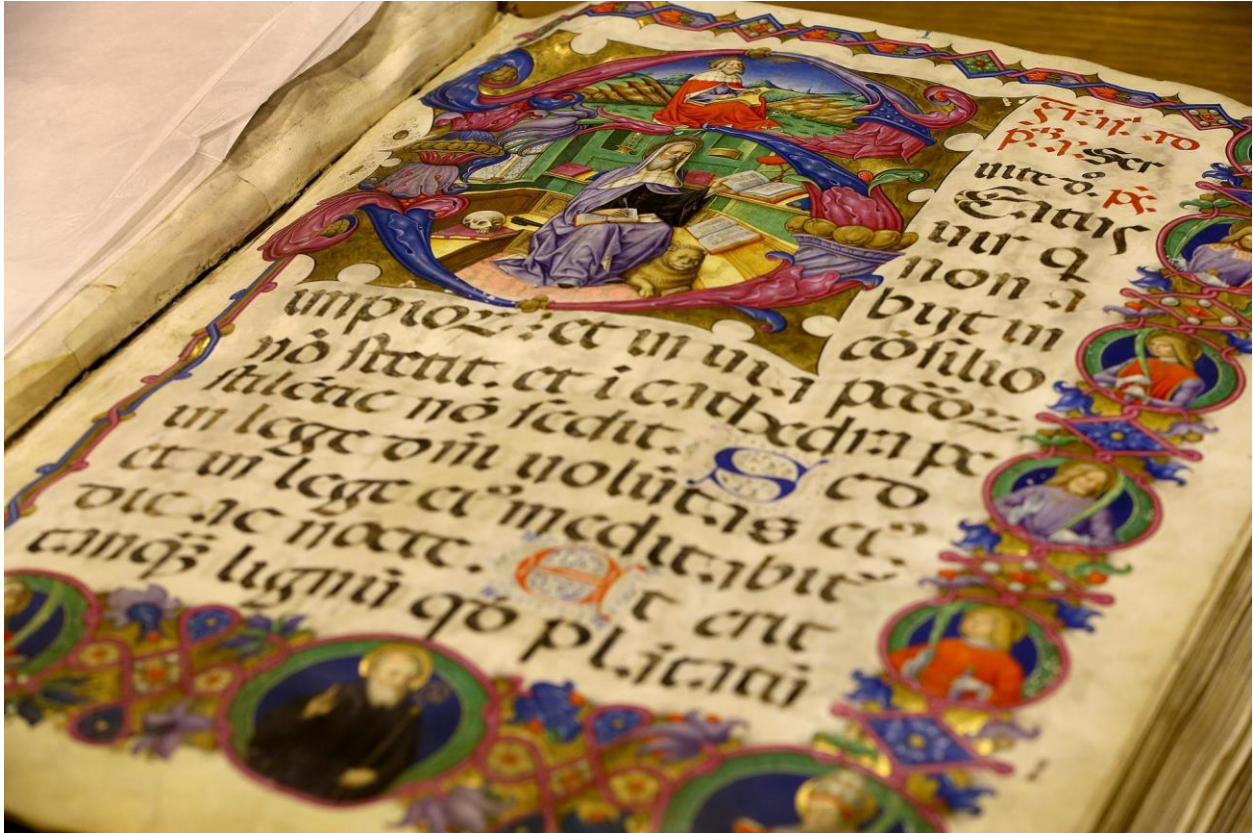 Ser
uite dō. p̄s.
Eatus
uir q
non a
bijt in
cōsilio
impioꝝ: et in uia pccōꝝ
nō stetit. et i cathedra pe
stilētiae nō sedit. Sed
in lege dm̄i uolūtas eiꝰ
et in lege eiꝰ meditabitᷣ
die ac nocte. Et erit
tanqꝫ lignū qd plātatū